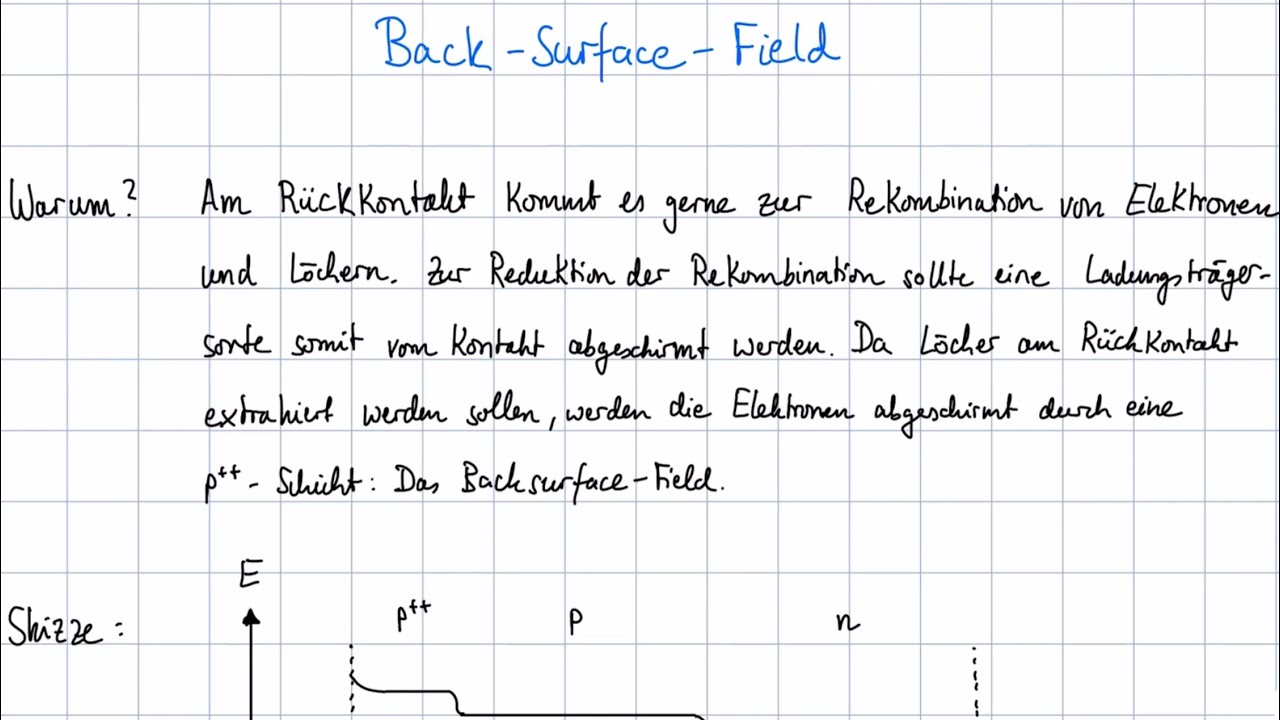 Back-Surface-Field
Warum? Am Rückkontakt kommt es gerne zur Rekombination von Elektronen
und Löchern. Zur Reduktion der Rekombination sollte eine Ladungsträger-
sorte somit vom Kontakt abgeschirmt werden. Da Löcher am Rückkontakt
extrahiert werden sollen, werden die Elektronen abgeschirmt durch eine
p++-Schicht: Das Backsurface-Field.
E
Skizze: p++ p n